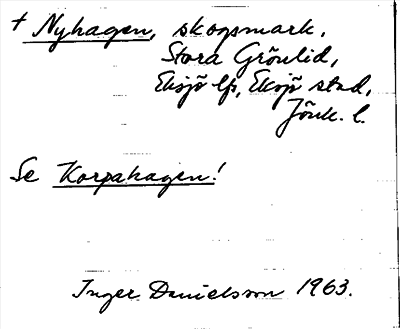 + Nyhagen, skogsmark,
Stora Grönlid,
Eksjö lfs, Eksjö stad,
Jönk. l.
Se Korpahagen!
Inger Danielsson 1963.